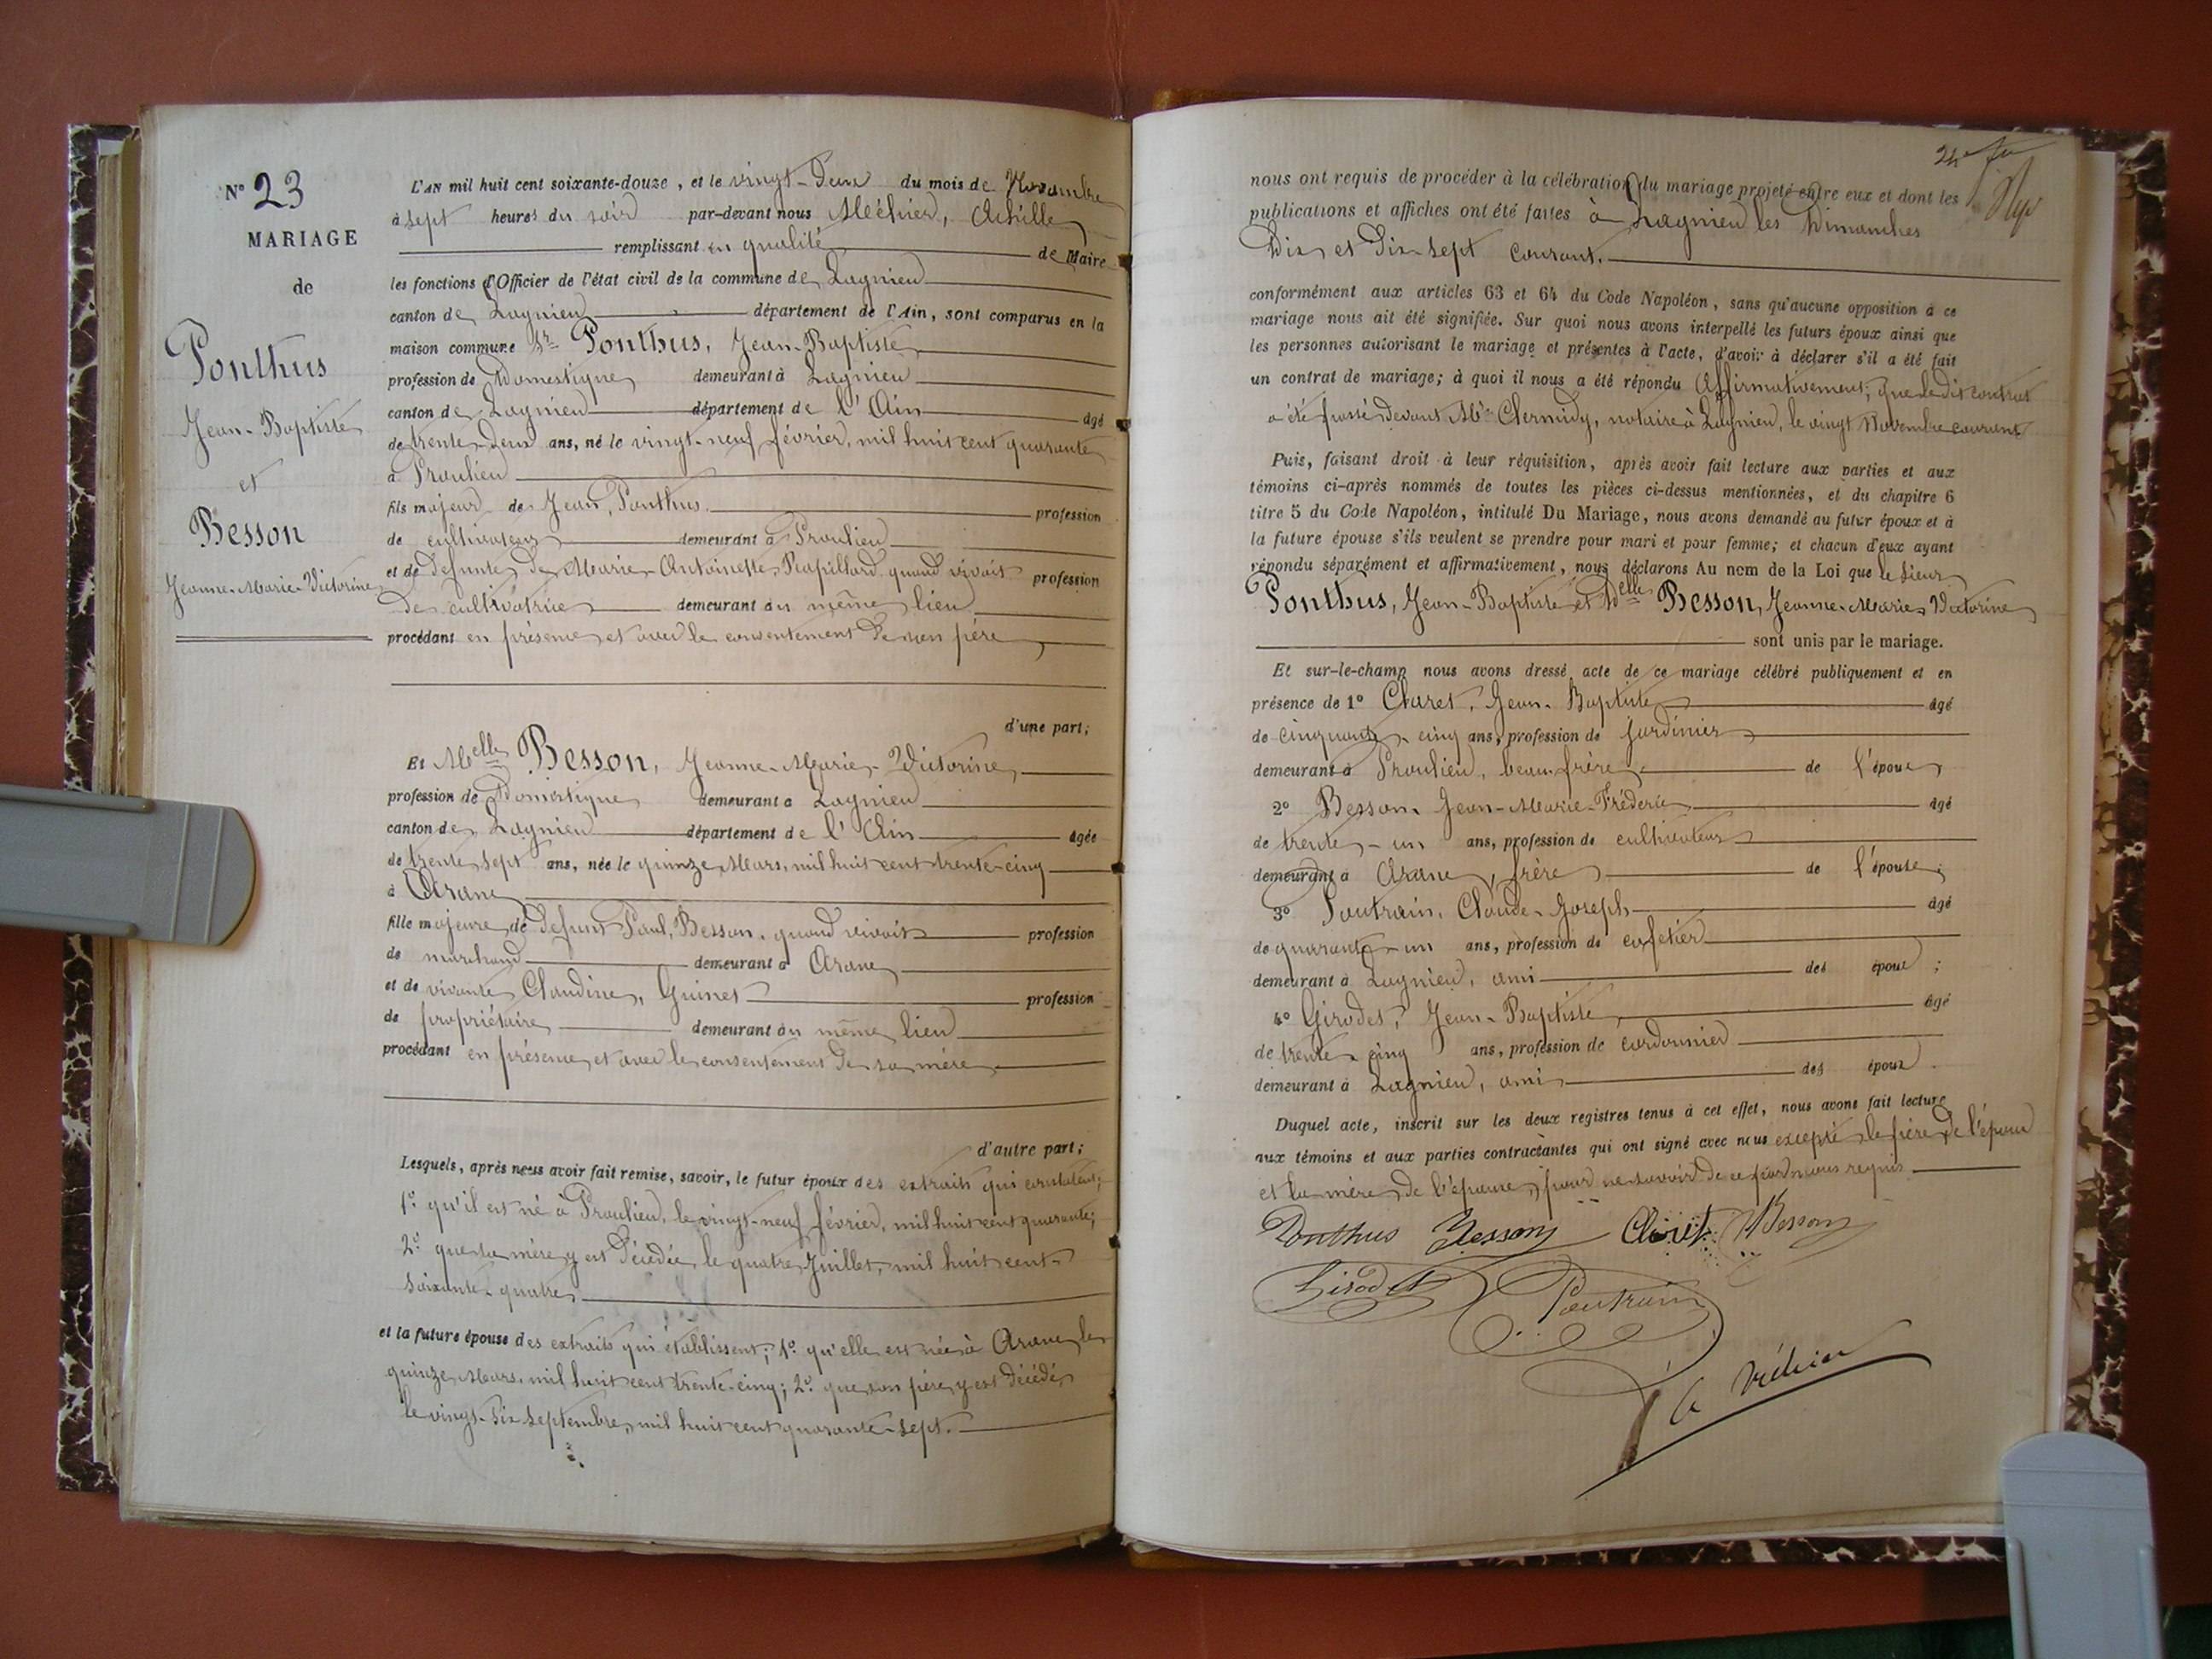 N° 23
MARIAGE
de
Ponthus
Jean-Baptiste
et
Besson
Jeanne-Marie-Victorine
L'AN mil huit cent soixante-douze, et le vingt-deux du mois de Novembre
à sept heures du soir par-devant nous Méhier, Achille
remplissant en qualité de Maire
les fonctions d'Officier de l'état civil de la commune de Lagnieu
canton de Lagnieu département de l'Ain, sont comparus en la
maison commune Sr Ponthus, Jean-Baptiste
profession de Domestique demeurant à Lagnieu
canton de Lagnieu département de l'Ain âgé
de trente-deux ans, né le vingt-neuf février, mil huit cent quarante
à Proulieu
fils majeur de Jean, Ponthus. profession
de cultivateur demeurant à Proulieu
et de défunte de Marie-Antoinette, Papillard quand vivait profession
de cultivatrice demeurant au même lieu
procédant en présence et avec le consentement de son père
d'une part;
Et Melle Besson, Jeanne-Marie-Victorine,
profession de Domestique demeurant à Lagnieu
canton de Lagnieu département de l'Ain âgée
de trente sept ans, née le quinze Mars, mil huit cent trente-cinq
à Arane
fille majeure de défunt Paul, Besson, quand vivait profession
de marchand demeurant à Arane
et de vivante Claudine, Guinet profession
de propriétaire demeurant au même lieu
procédant en présence et avec le consentement de sa mère
d'autre part;
Lesquels, après nous avoir fait remise, savoir, le futur époux des extraits qui constatent;
1° qu'il est né à Proulieu, le vingt-neuf février, mil huit cent quarante;
2° que sa mère y est décédée, le quatre Juillet, mil huit cent-
soixante-quatre
et la future épouse des extraits qui établissent; 1° qu'elle est née à Arane, le
quinze Mars, mil huit cent trente-cinq; 2° que son père y est décédé,
le vingt-six septembre, mil huit cent quarante-sept.
nous ont requis de procéder à la célébration du mariage projeté entre eux et dont les
publications et affiches ont été faites à Lagnieu les Dimanches
Dix et Dix-sept courant.
conformément aux articles 63 et 64 du Code Napoléon, sans qu'aucune opposition à ce
mariage nous ait été signifiée. Sur quoi nous avons interpellé les futurs époux ainsi que
les personnes autorisant le mariage et présentes à l'acte, d'avoir à déclarer s'il a été fait
un contrat de mariage; à quoi il nous a été répondu affirmativement; que le dit contrat
a été passé devant Me Clermidy, notaire à Lagnieu, le vingt Novembre courant
Puis, faisant droit à leur réquisition, après avoir fait lecture aux parties et aux
témoins ci-après nommés de toutes les pièces ci-dessus mentionnées, et du chapitre 6
titre 5 du Code Napoléon, intitulé Du Mariage, nous avons demandé au futur époux et à
la future épouse s'ils veulent se prendre pour mari et pour femme; et chacun d'eux ayant
répondu séparément et affirmativement, nous déclarons Au nom de la Loi que le Sieur
Ponthus, Jean-Baptiste et Delle Besson, Jeanne-Marie, Victorine
sont unis par le mariage.
Et sur-le-champ nous avons dressé acte de ce mariage célébré publiquement et en
présence de 1° Claret, Jean-Baptiste âgé
de cinquante-cinq ans, profession de jardinier
demeurant à Proulieu, beau-frère de l'époux
2° Besson, Jean-Marie-Fréderic âgé
de trente-un ans, profession de cultivateur
demeurant à Arane, frère de l'épouse;
3° Poutrain, Claude-Joseph âgé
de quarante-un ans, profession de cafetier
demeurant à Lagnieu, ami des époux;
4° Girodet, Jean-Baptiste âgé
de trente-cinq ans, profession de cordonnier
demeurant à Lagnieu, ami des époux.
Duquel acte, inscrit sur les deux registres tenus à cet effet, nous avons fait lecture
aux témoins et aux parties contractantes qui ont signé avec nous excepté le père de l'époux
et la mère de l'épouse, pour ne savoir de ce par nous requis.
Ponthus Besson Claret Besson
Girodet Poutrain
A Méhier